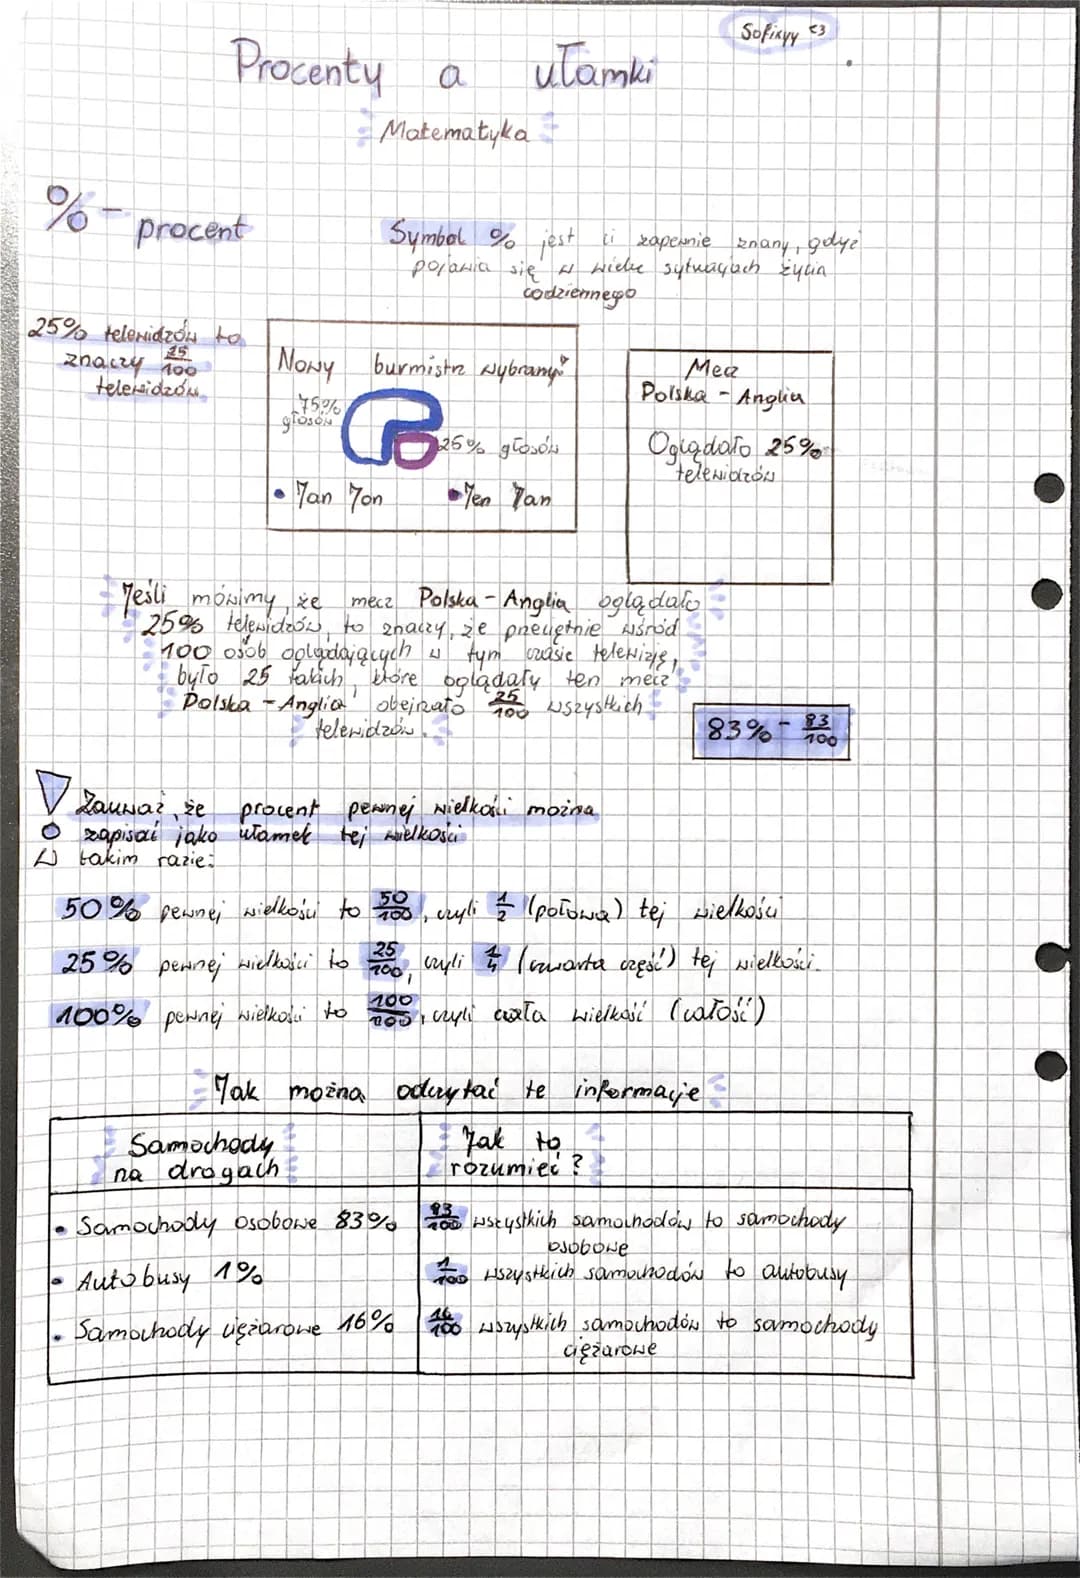 Sofixyy <3
Procenty a ułamki
Matematyka
% - procent
Symbol % jest ci zapewnie znany, gdyż
pojawia się w wielu sytuacjach życia
codziennego
25% telewidzów to
znaczy 25/100
telewidzów
Nowy burmistrz wybrany!
75%
głosów
25% głosów
• Jan Jon
• Jen Jan
Mecz
Polska - Anglia
Oglądało 25%
telewidzów
Jeśli mówimy, że mecz Polska - Anglia oglądało
25% telewidzów, to znaczy, że przeciętnie wśród
100 osób oglądających w tym czasie telewizję,
było 25 takich, które oglądały ten mecz.
Polska - Anglia obejrzało 25/100 wszystkich
telewidzów.
83% - 83/100
! Zauważ, że procent pewnej wielkości można
zapisać jako ułamek tej wielkości
W takim razie:
50% pewnej wielkości to 50/100, czyli 1/2 (połowa) tej wielkości
25% pewnej wielkości to 25/100, czyli 1/4 (czwarta część) tej wielkości.
100% pewnej wielkości to 100/100, czyli cała wielkość (całość)
Jak można odczytać te informacje
Samochody
na drogach
Jak to
rozumieć?
• Samochody osobowe 83%
83/100 wszystkich samochodów to samochody
osobowe
• Autobusy 1%
1/100 wszystkich samochodów to autobusy
• Samochody ciężarowe 16%
16/100 wszystkich samochodów to samochody
ciężarowe